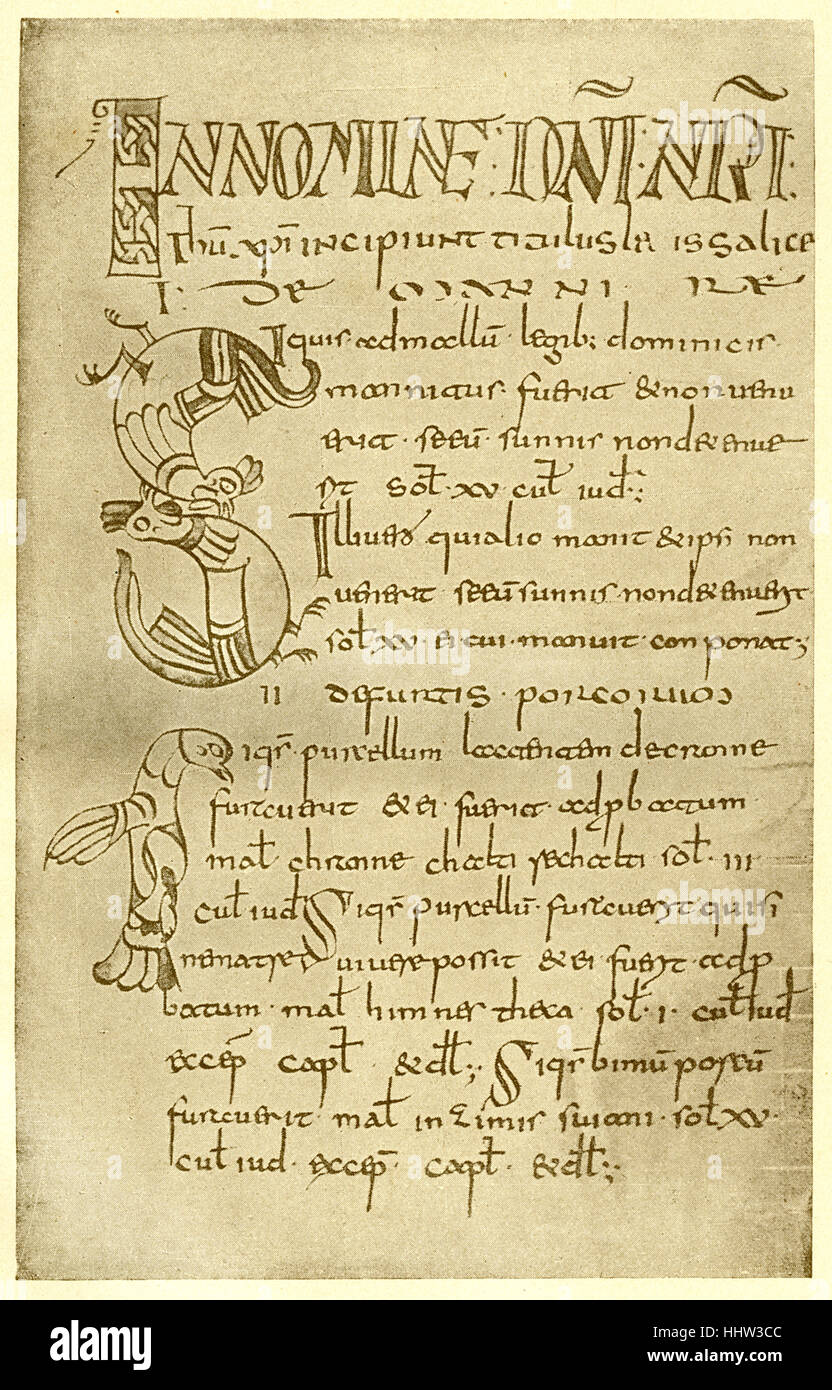 IN NOMINE · DÑI · NR̃I :
Ihū xp̄i incipiunt titulus legis salice
I · DE MANNIRE
Siquis ad mallū · legib; dominicis ·
mannitus · fuerit & non uenu
erit · seeū · sunnis non detenue
rit sol · xv · cul iud ;
Ille uero qui alio manit & ipsi non
uenerit seeū sunnis · non detenuerit
sol xv · ei cui · manuit conponat ;
II DE FURTIS · PORCORUM
Siqs̄ · purcellum lactantem de crane
furauerit & ei · fuerit · adp̄batum
mal chranne chalti rechalti sol · III
cul iud Siqs̄ purcellū · furauerit qui si
ne matre uiuere possit & ei fuerit · adp̄
batum · mal himnes theca sol · I · cul iud
excep̄ capl · & dl ; Siqs̄ bimū porcū
furauerit · mal in zimis suiani · sol xv ·
cul iud · excep̄ · capl · & dl ;
alamy
Image ID: HHW3CC
www.alamy.com